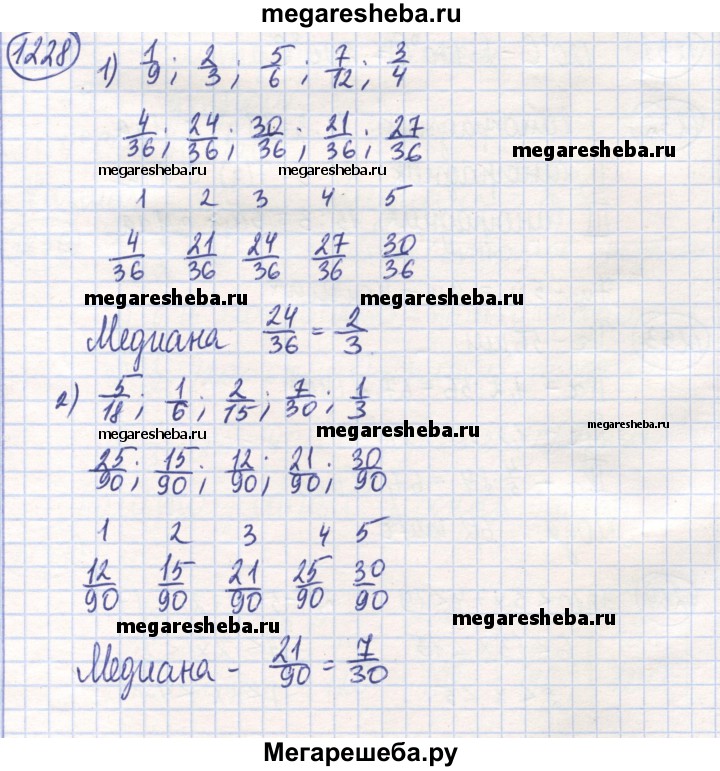 megaresheba.ru
1228
1) 1/9; 2/3; 5/6; 7/12; 3/4
4/36; 24/36; 30/36; 21/36; 27/36
megaresheba.ru
megaresheba.ru megaresheba.ru
1 2 3 4 5
4/36 21/36 24/36 27/36 30/36
megaresheba.ru megaresheba.ru
Медиана 24/36 = 2/3
2) 5/18; 1/6; 2/15; 7/30; 1/3
megaresheba.ru megaresheba.ru megaresheba.ru
25/90; 15/90; 12/90; 21/90; 30/90
1 2 3 4 5
12/90 15/90 21/90 25/90 30/90
megaresheba.ru megaresheba.ru
Медиана - 21/90 = 7/30
Мегарешеба.ру